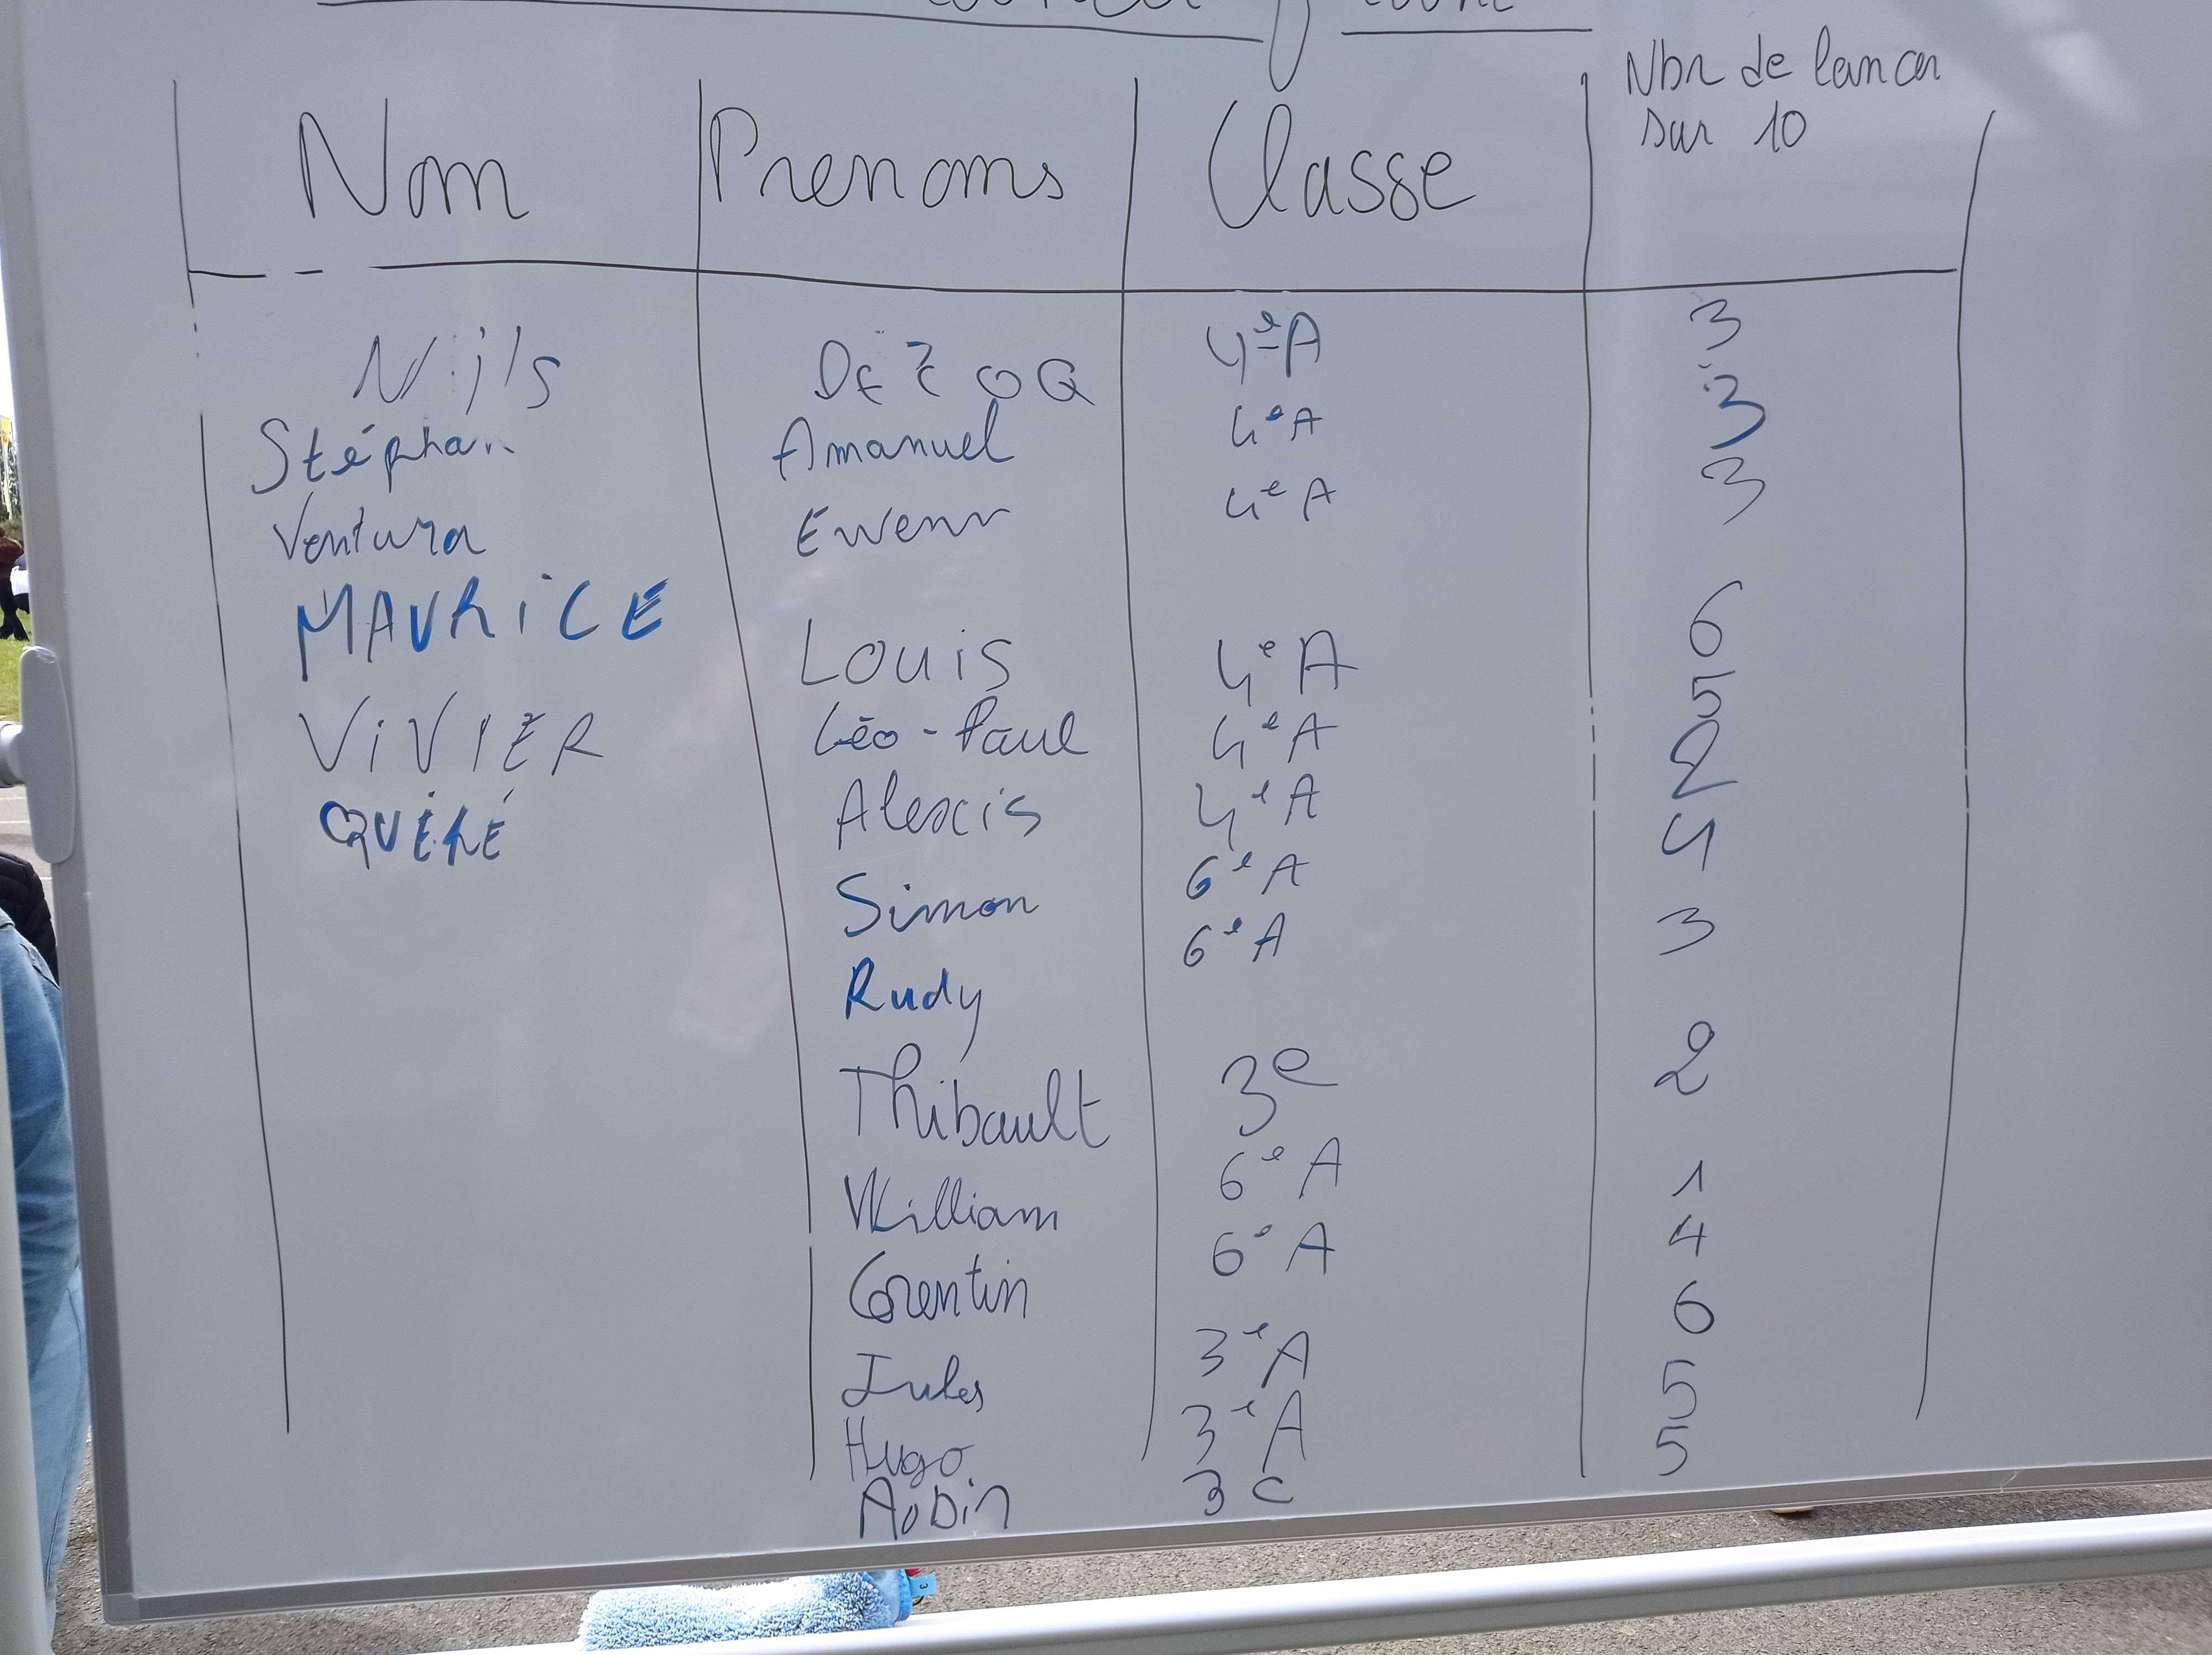 Nom Prenoms Classe Nbr de lancer sur 10
Nijs DEZOQ 4eA 3
Stéphan Amanuel 4eA 3
Ventura Ewenn 4eA 3
MAURICE Louis 4eA 6
ViViER Léo-Paul 4eA 5
QUÉRÉ Alexis 4eA 2
Simon 6eA 4
Rudy 6eA 3
Thibault 3e 2
William 6eA 1
Corentin 6eA 4
Jules 3eA 6
Hugo 3eA 5
Aubin 3C 5